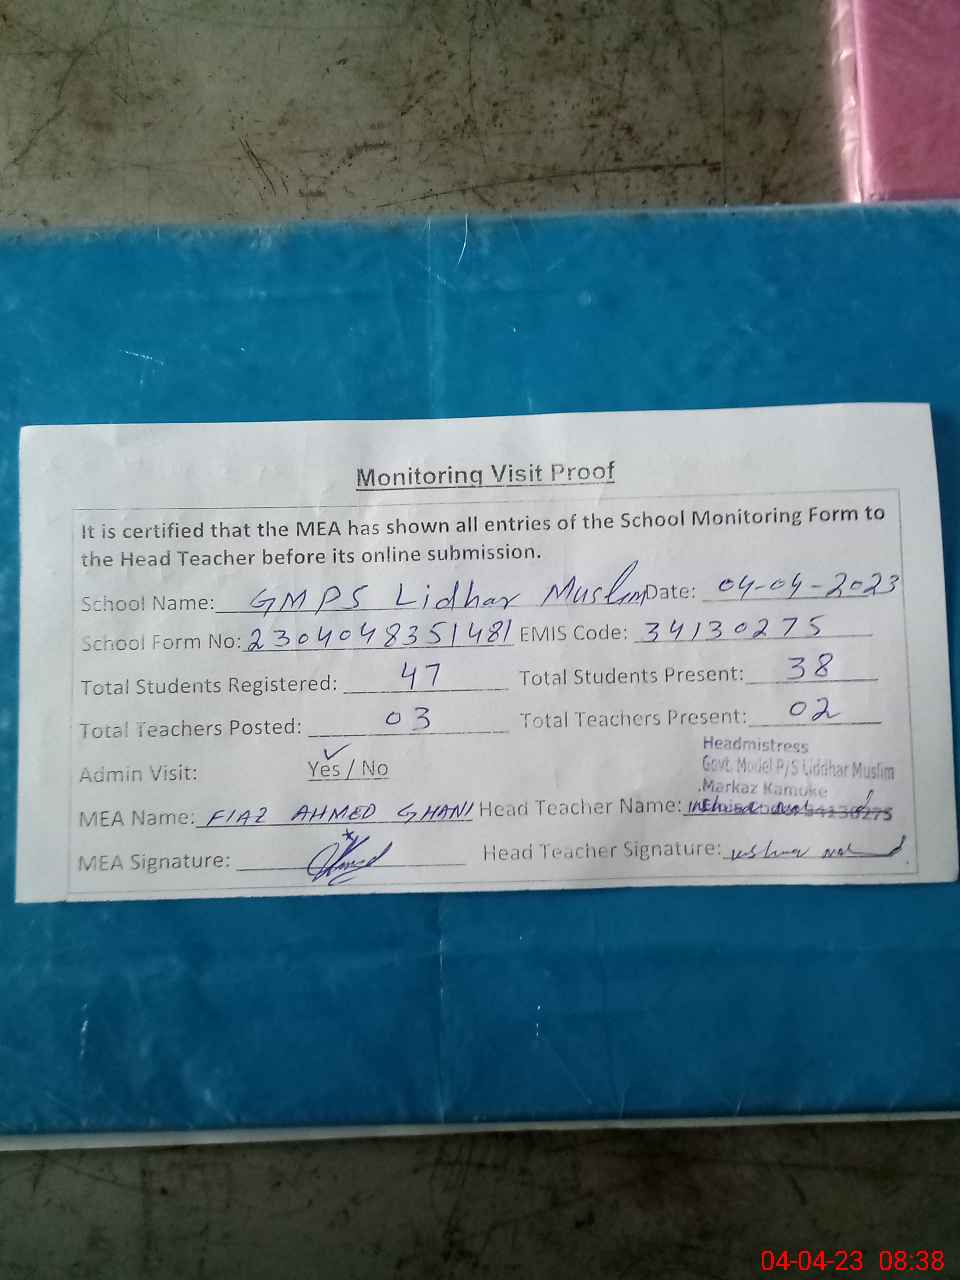 Monitoring Visit Proof
It is certified that the MEA has shown all entries of the School Monitoring Form to
the Head Teacher before its online submission.
School Name: GMPS Lidhar Muslim Date: 04-04-2023
School Form No: 2304048351481 EMIS Code: 34130275
Total Students Registered: 47 Total Students Present: 38
Total Teachers Posted: 03 Total Teachers Present: 02
Headmistress
Govt. Model P/S Liddhar Muslim
Admin Visit: Yes / No
Markaz Kamoke
MEA Name: FIAZ AHMED GHANI Head Teacher Name: 34130275
MEA Signature: Head Teacher Signature:
04-04-23 08:38